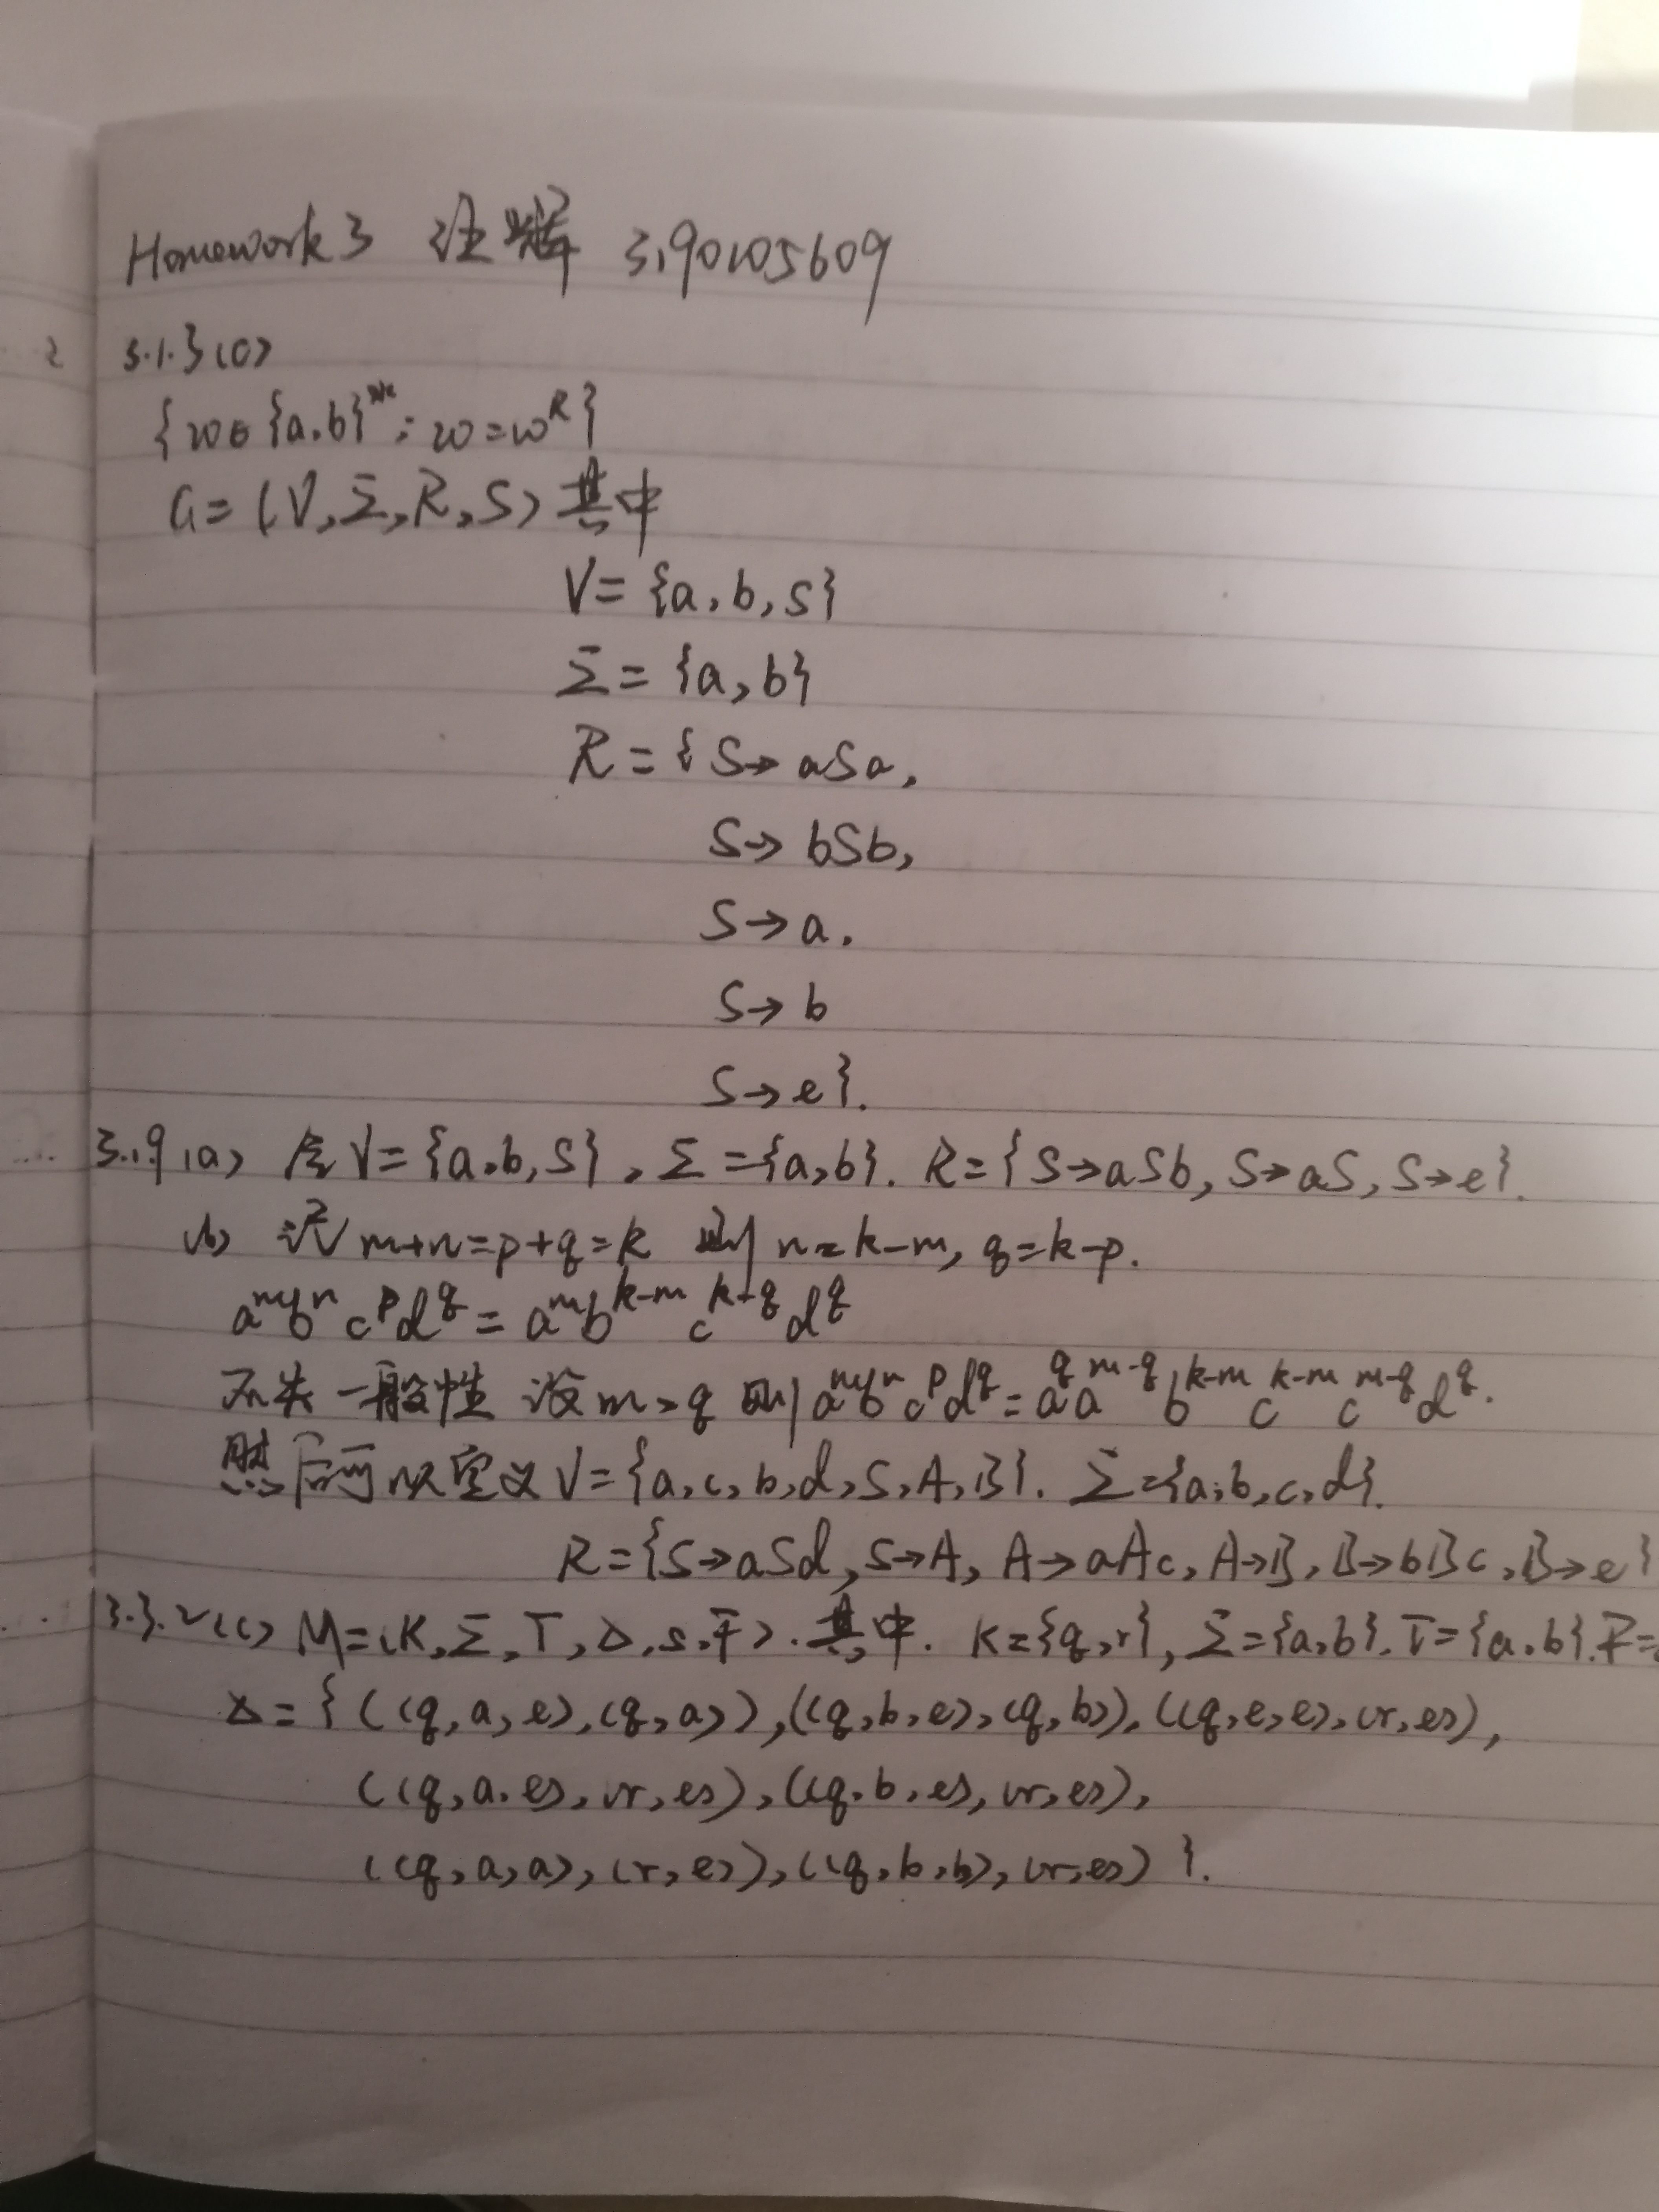 Homework 3 汪辉 3190105609
3.1.3(c)
{w∈{a,b}*: w=w^R}
G=(V,Σ,R,S) 其中
V={a,b,S}
Σ={a,b}
R={S→aSa,
S→bSb,
S→a,
S→b
S→e}.
3.1.9(a) 令V={a,b,S}, Σ={a,b}. R={S→aSb, S→aS, S→e}.
(b) 设m+n=p+q=k 则 n=k-m, q=k-p.
a^m b^n c^p d^q = a^m b^{k-m} c^{k-q} d^q
不失一般性 设m>q 则 a^m b^n c^p d^q = a^q a^{m-q} b^{k-m} c^{k-m} c^{m-q} d^q.
然后可以定义V={a,c,b,d,S,A,B}. Σ={a,b,c,d}.
R={S→aSd, S→A, A→aAc, A→B, B→bBc, B→e}
3.3.2(c) M=(K,Σ,Γ,Δ,s,F). 其中. K={q,r}, Σ={a,b}. Γ={a,b}. F=
Δ={((q,a,e),(q,a)),((q,b,e),(q,b)),((q,e,e),(r,e)),
((q,a,e),(r,e)),((q,b,e),(r,e)),
((q,a,a),(r,e)),((q,b,b),(r,e))}.